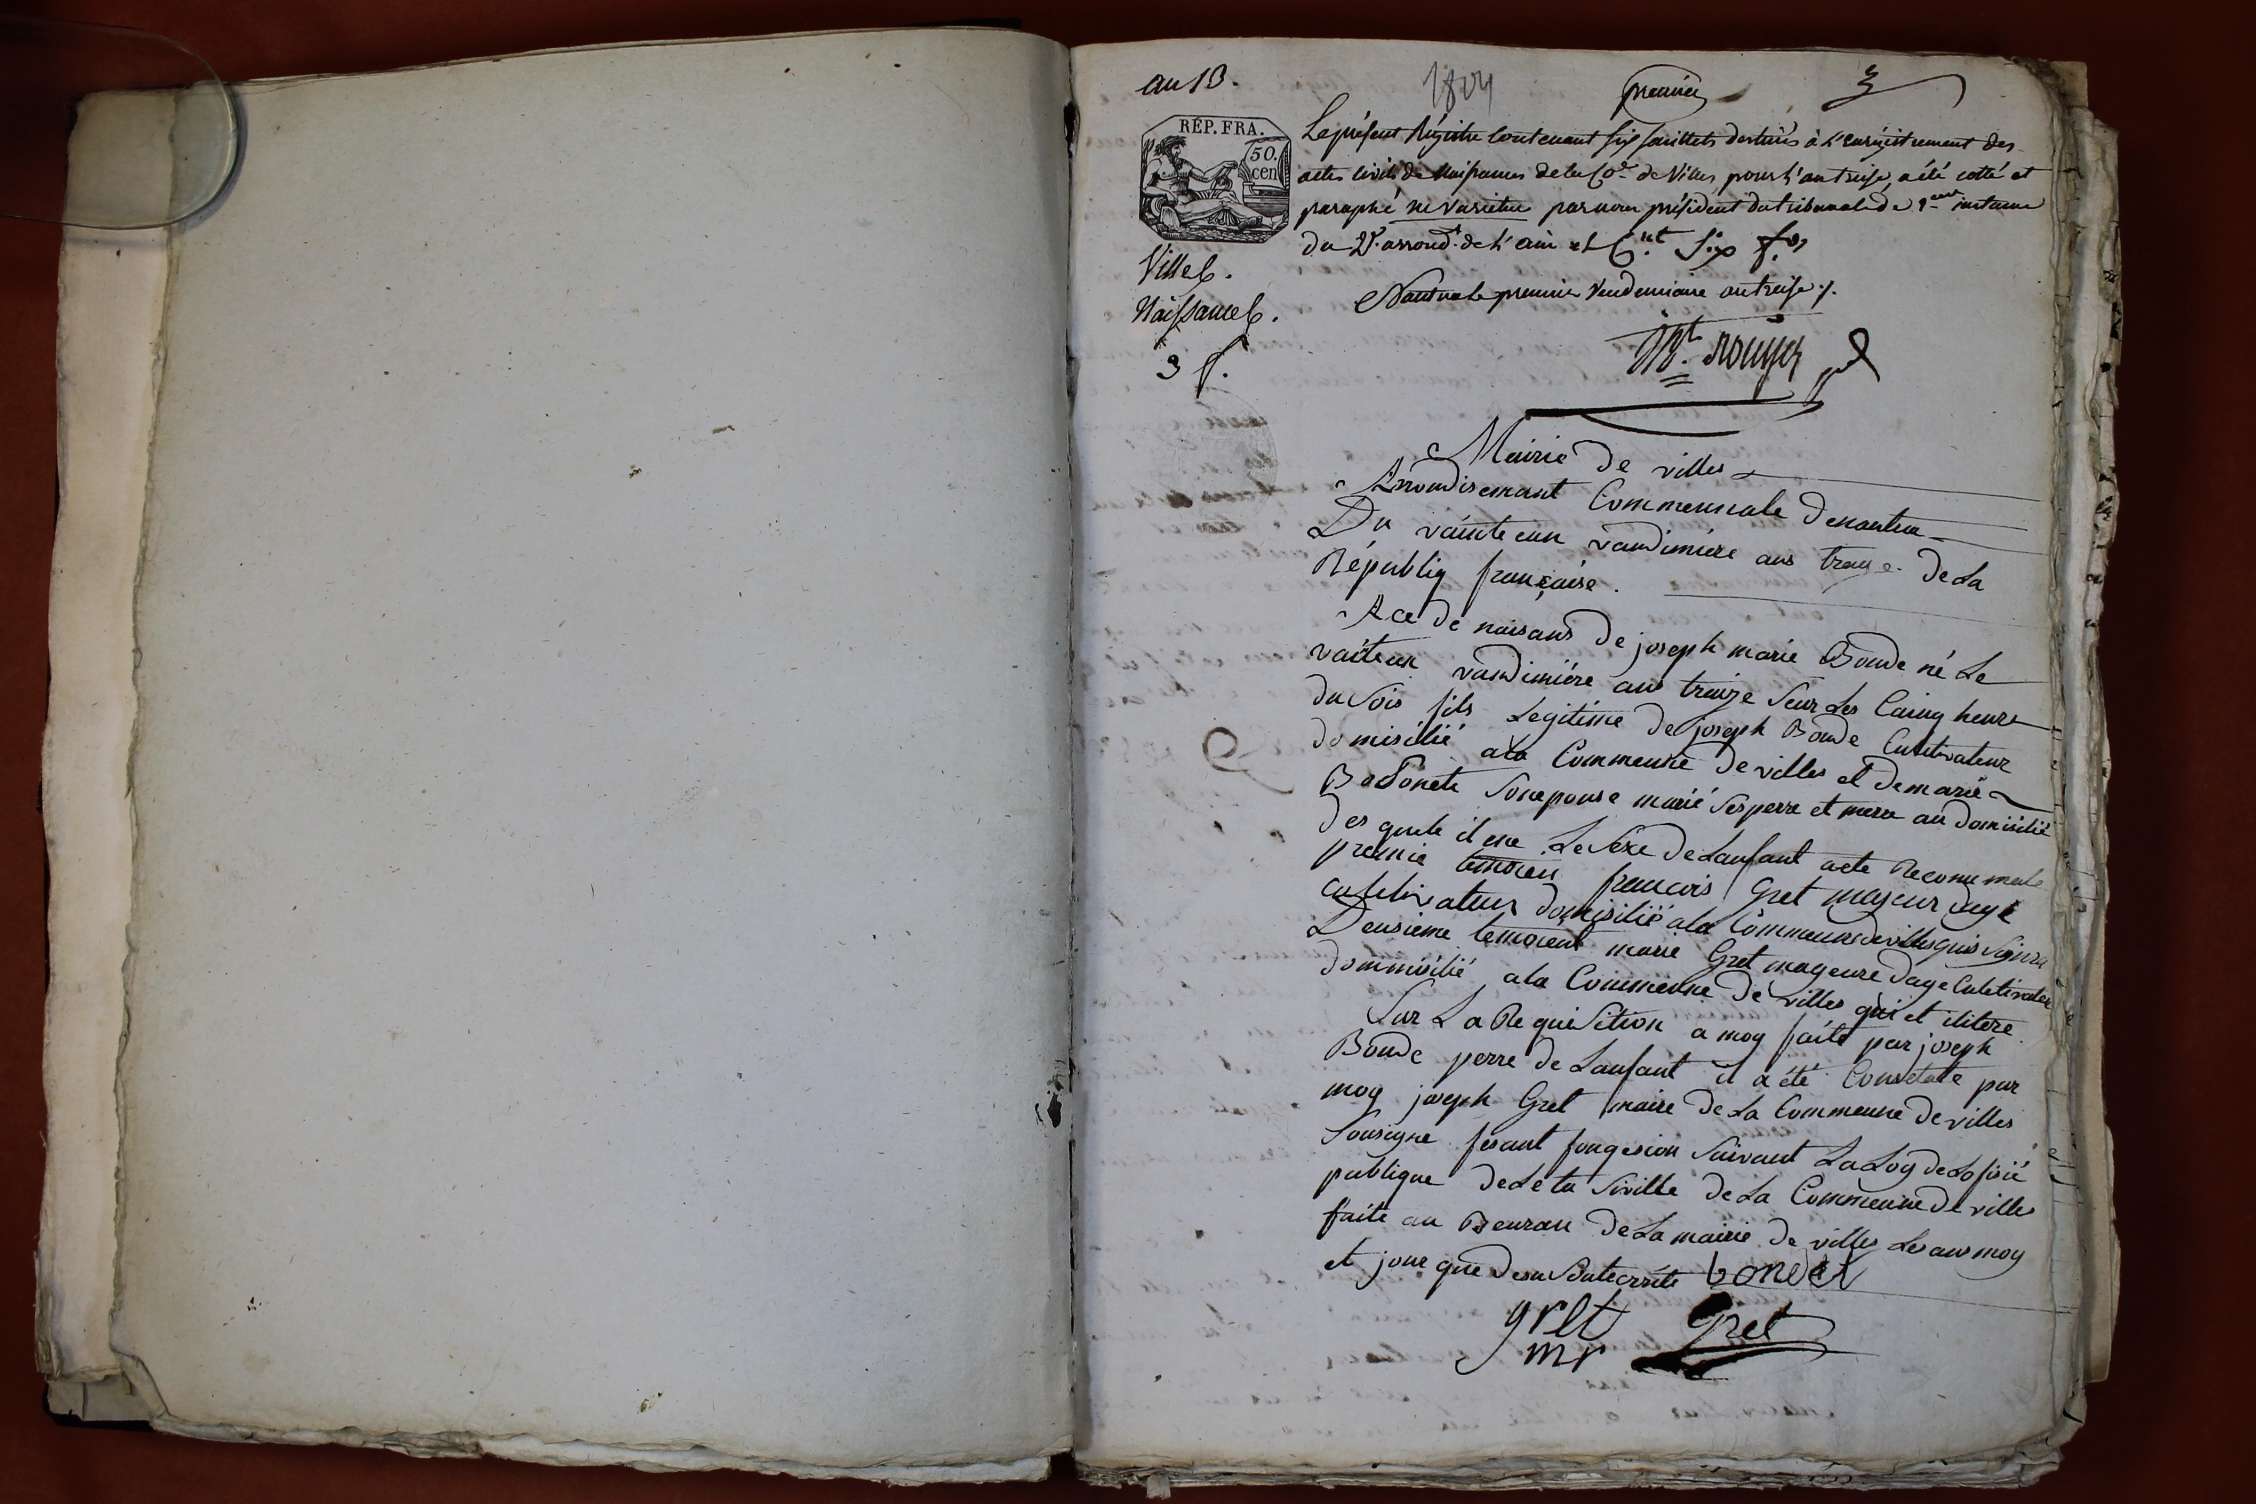 an 13.
1804
premier
RÉP. FRA.
50.
cen
Le présent Régistre contenant six feuillets destinés à l'enrégistrement des
actes civils de Naissances de la Co.e de Villes pour l'an treize, a été cotté et
paraphé ne varietur par nous président du tribunal de 1.ere instance
du 2.e arrond.t de l'ain et C.nt six f.es
Nantua le premier Vendemiaire an treize ./.
Rouyer
Villes.
Naissances.
3 f.
Mairie de villes
Arrondisemant Commeunale denantua
Du váinteun vandimiére ans treize de La
Républiq françaíse.
Ace de naisans de joseph marie Bonde né Le
vaíteun vandimiére ans treize Seur Les Cainq heure
du Sois fils Legitíme de joseph Bonde Cultivateur
domisílié ala Commeune de villes et de marie
Bodonete Son epouse marié Ses perre et mere au domisilié
des quels il ene Le Séxe de Lanfant aete Reconu male
premie temoien francois Gret majeur dage
Cultivateur domisílié ala Commeune de villes quis Signra
Deusieme temoient marie Gret mageure dage Cultivateur
dommisilié ala Commeune de villes qui et ilitere
Sur La Requisition a moy faite par joseph
Bonde perre de Lanfant il a été Constate par
moy joseph Gret maire de La Commeune de villes
Sousigne fesant fongesion Suivant La Loy de Lofisié
publique de Leta Siville de La Commeune de villes
faite au Beurau de La mairie de villes Les ans moy
et jour que desu
bondet
gret
mr
Gret